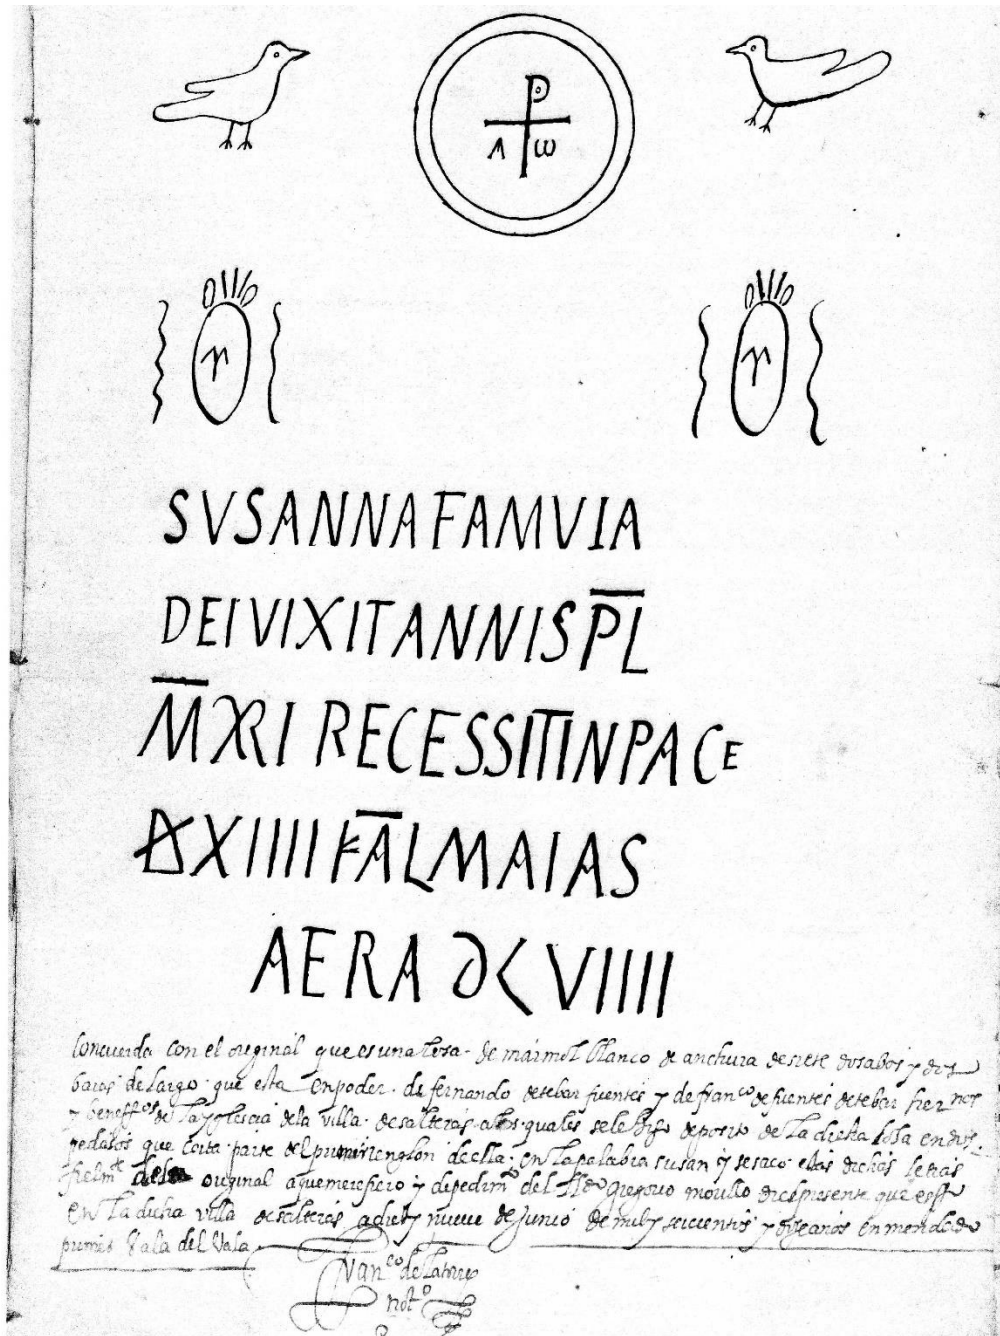 P
Λ ω
SVSANNA FAMVIA
DEI VIXIT ANNIS PL
M XRI RECESSIT IN PACE
XIIII KAL MAIAS
AERA DC VIIII
Concuerda con el original que es una losa de marmol blanco de anchura de siete dosabos y dos
baras de largo que esta en poder de fernando de tebar fuentes y de fran.co de fuentes de tebar
y beneff.os de la yglesia de la villa de salteras a los quales se le hiço deposito de la dicha losa en dos
pedasos que corta parte del primer renglon de ella en la palabra susan y se saco estas dichas letras
fielm.te del original a quemerefiero y de pedim.o del Gregorio presente que esff
en la dicha villa de salteras a diez y nueve de Junio de mil y seiscientos y años enmendado
primer
fran.co de la torre
not.o